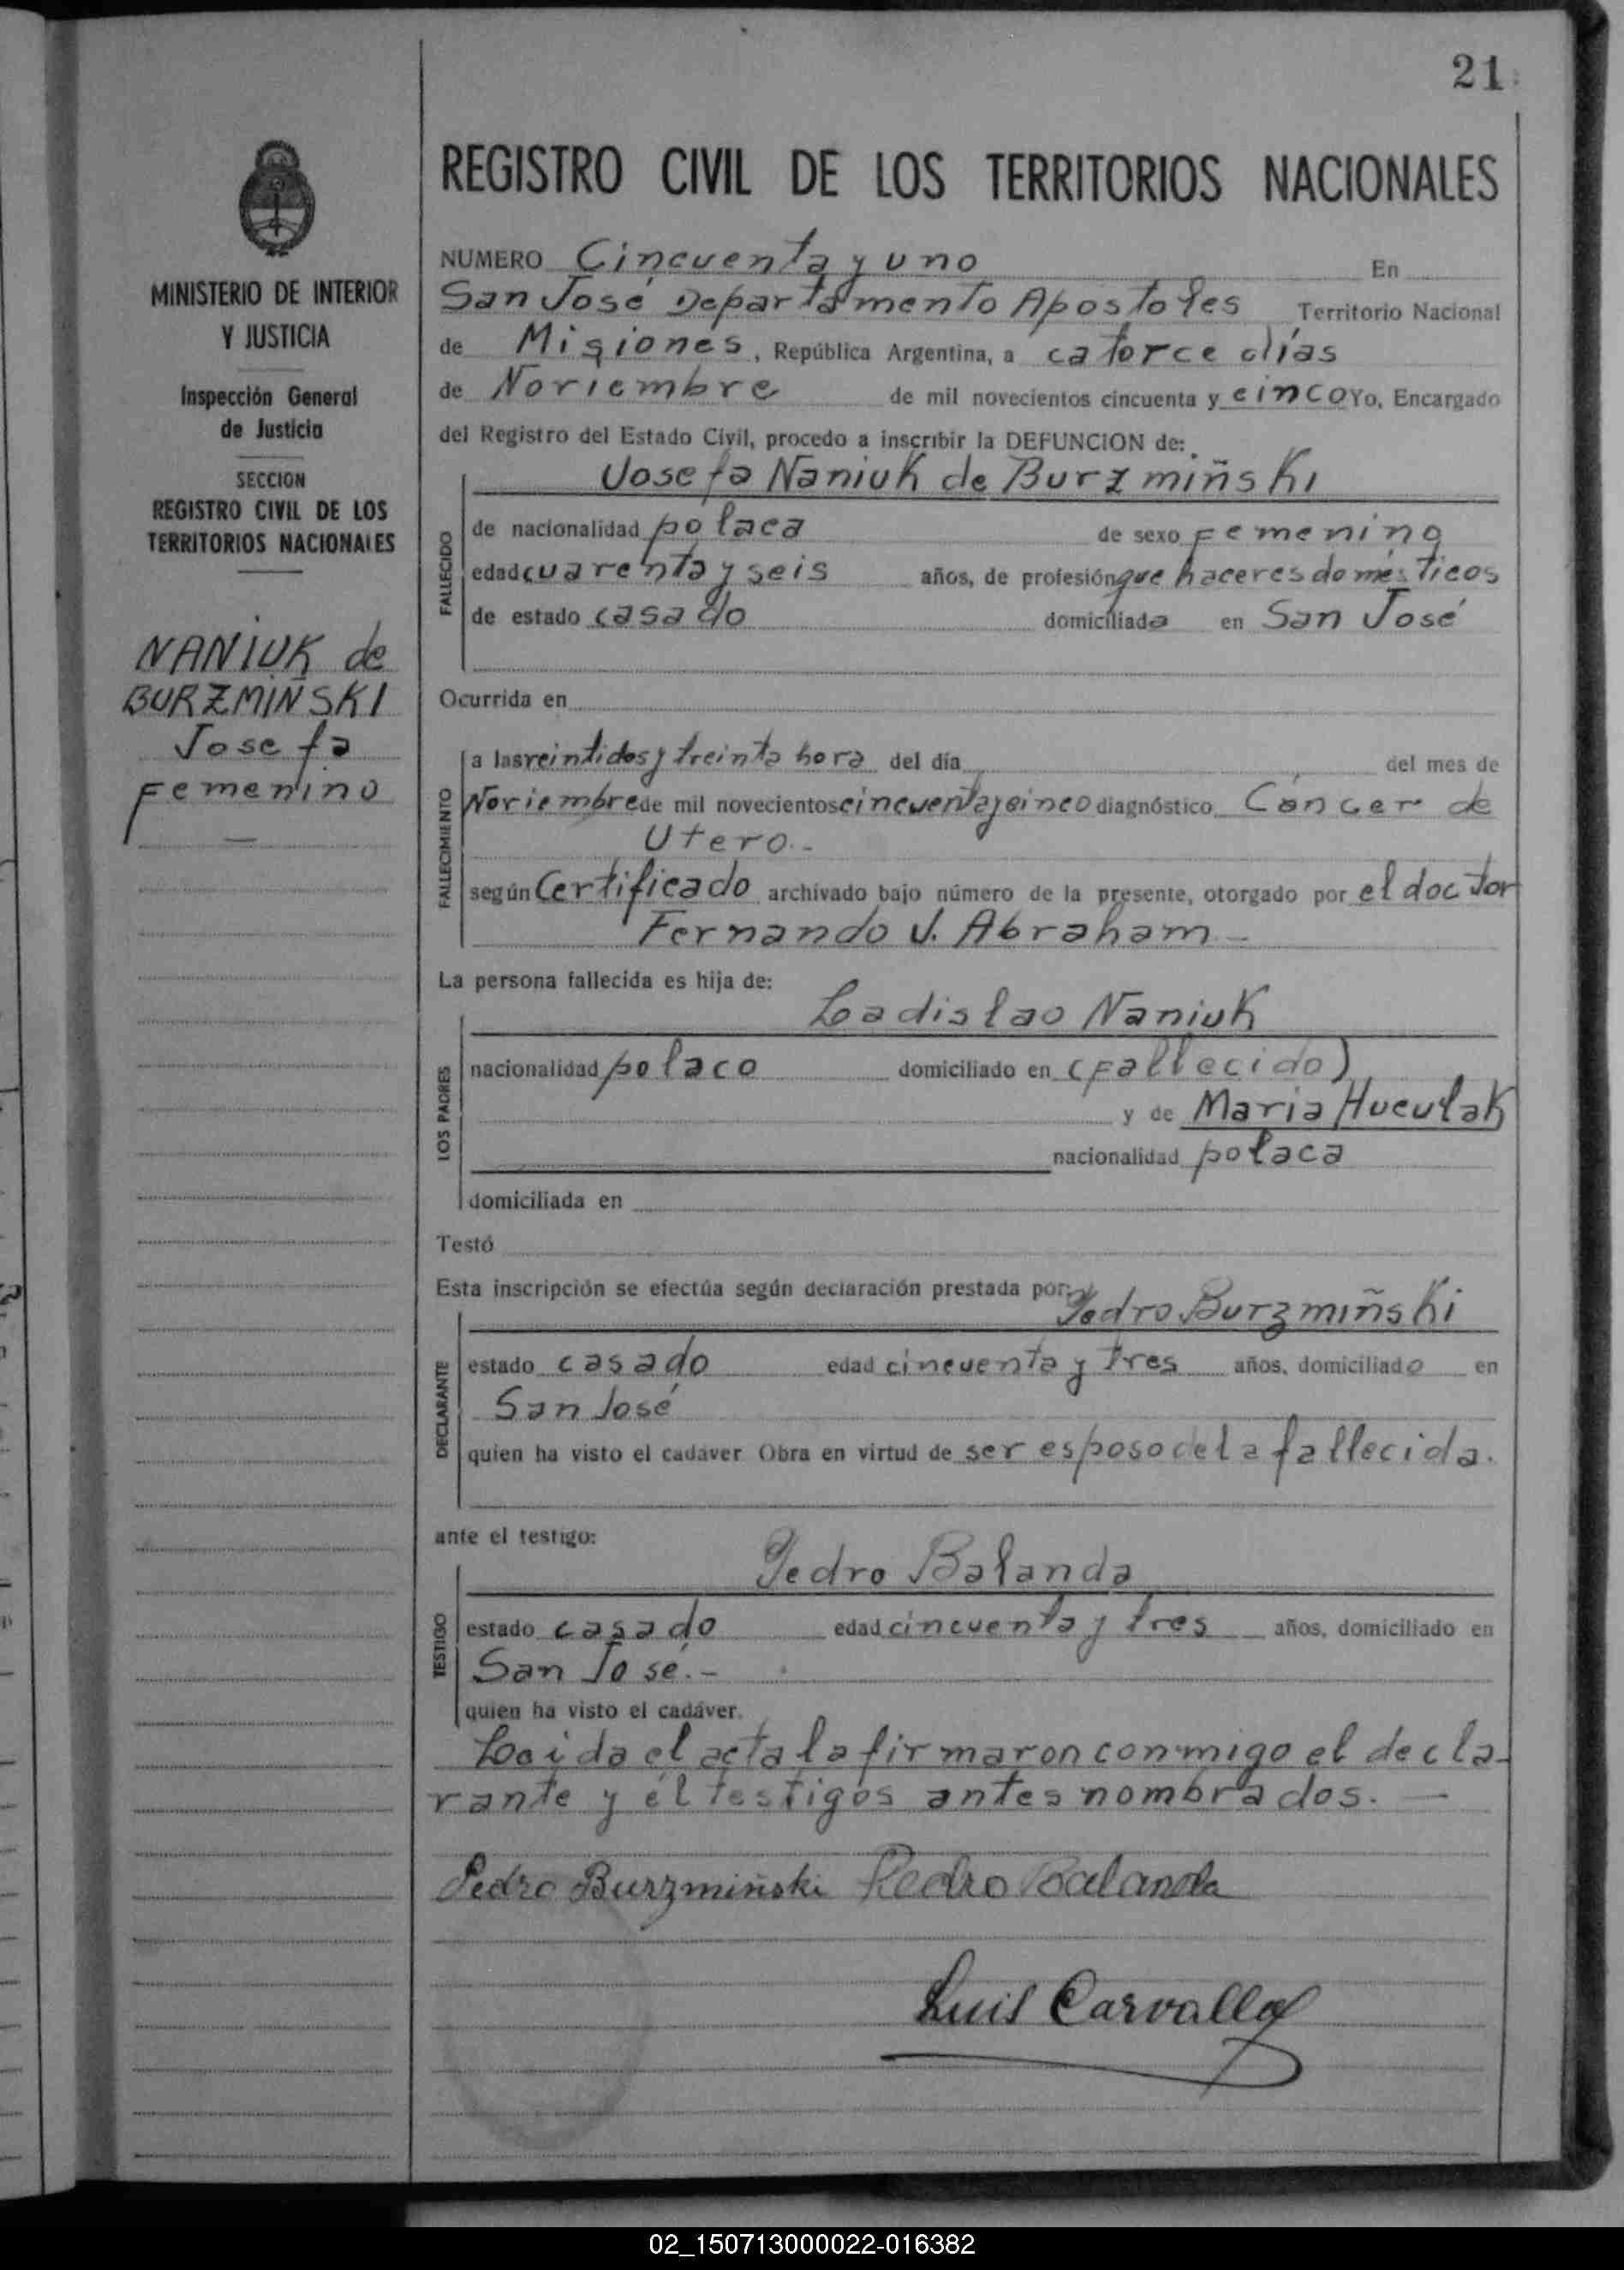 21
REGISTRO CIVIL DE LOS TERRITORIOS NACIONALES
MINISTERIO DE INTERIOR
Y JUSTICIA
Inspección General
de Justicia
SECCION
REGISTRO CIVIL DE LOS
TERRITORIOS NACIONALES
NANIUK de
BURZMIÑSKI
Josefa
Femenino
NUMERO Cincuenta y uno En
San José Departamento Apostoles Territorio Nacional
de Misiones, República Argentina, a catorce días
de Noviembre de mil novecientos cincuenta y cinco Yo, Encargado
del Registro del Estado Civil, procedo a inscribir la DEFUNCION de:
Josefa Naniuk de Burzmiñski
FALLECIDO
de nacionalidad polaca de sexo Femenino
edad cuarenta y seis años, de profesión que haceres domésticos
de estado casado domiciliada en San José
Ocurrida en
FALLECIMIENTO
a las veintidos y treinta hora del día del mes de
Noviembre de mil novecientos cincuenta y cinco diagnóstico Cáncer de
Utero.-
según Certificado archivado bajo número de la presente, otorgado por el doctor
Fernando J. Abraham -
La persona fallecida es hija de:
Ladislao Naniuk
LOS PADRES
nacionalidad polaco domiciliado en (Fallecido)
y de Maria Huculak
nacionalidad polaca
domiciliada en
Testó
Esta inscripción se efectúa según declaración prestada por:
Pedro Burzmiñski
DECLARANTE
estado casado edad cincuenta y tres años, domiciliado en
San José
quien ha visto el cadáver Obra en virtud de ser esposo de la fallecida.
ante el testigo:
Pedro Balanda
TESTIGO
estado casado edad cincuenta y tres años, domiciliado en
San José.-
quien ha visto el cadáver.
Leida el acta la firmaron conmigo el decla-
rante y él testigos antes nombrados. —
Pedro Burzmiński Pedro Balanda
Luis Carvallo
02_150713000022-016382